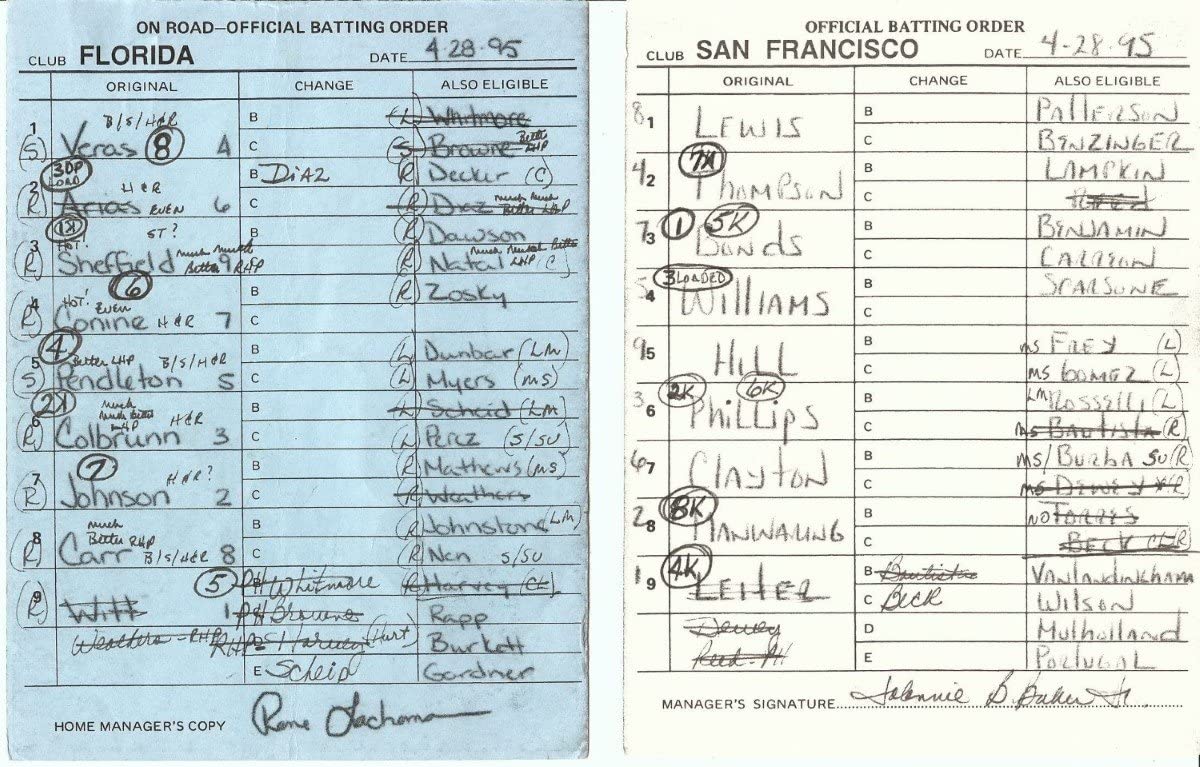 ON ROAD—OFFICIAL BATTING ORDER
CLUB FLORIDA DATE 4-28-95
ORIGINAL CHANGE ALSO ELIGIBLE
B/S/H&R B (L) Whitmore
1 (S) Veras 8 4 C (S) Browne Better LHP
3DP B Diaz (R) Decker (C)
H&R
2 (R) Arias EVEN 6 C (R) Diaz much much Better LHP
1K ST? B (R) Dawson
HOT! much much
3 (R) Sheffield Better RHP 9 C (R) Natal LHP (C)
6 B (R) Zosky
HOT! EVEN
4 (R) Conine H&R 7 C
4 B (L) Dunbar (LM)
Better LHP B/S/H&R
5 (S) Pendleton 5 C (L) Myers (MS)
2K much B (L) Scheid (LM)
much better LHP H&R
6 (R) Colbrunn 3 C (L) Perez (S/SU)
7 H&R? B (R) Mathews (MS)
7 (R) Johnson 2 C (R) Weathers
much B (R) Johnstone (LM)
Better RHP
8 (R) Carr B/S/H&R 8 C (R) Nen S/SU
5 PH Whitmore (R) Harvey (CL)
9 (R) Witt 1 PH Browne Rapp
Weathers - RHP RHP Harvey (Hurt) Burkett
E Scheid Gardner
HOME MANAGER'S COPY Rene Lachemann
OFFICIAL BATTING ORDER
CLUB SAN FRANCISCO DATE 4-28-95
ORIGINAL CHANGE ALSO ELIGIBLE
8 1 LEWIS B PATTERSON
C BENZINGER
7K B LAMPKIN
4 2 THOMPSON C REED
1 5K B BENJAMIN
7 3 BONDS C CARREON
3 LOADED B SCARSONE
5 4 WILLIAMS C
9 5 HILL B MS FREY (L)
C MS GOMEZ (L)
2K 6K B LM ROSSELLI (L)
3 6 PHILLIPS C MS BAUTISTA (R)
6 7 CLAYTON B MS/BURBA SU (R)
C MS DEWEY (R)
8K B NO TORRES
2 8 MANWARING C BECK CL (R)
4K B Bautista VANLANDINGHAM
1 9 LEITER C BECK WILSON
Dewey D MULHOLLAND
Reed - PH E PORTUGAL
MANAGER'S SIGNATURE Johnnie B. Baker Jr.